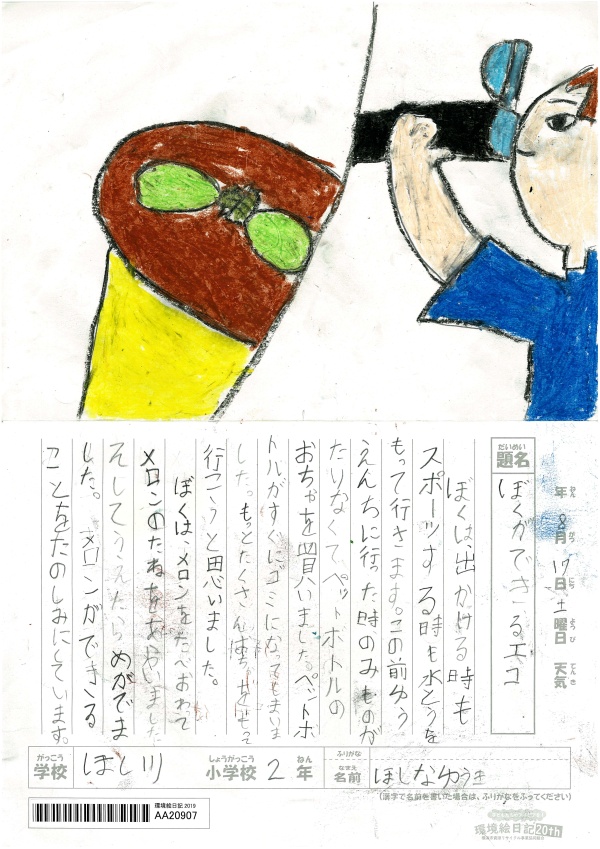 だいめい
題名
ぼくができるエコ
年 ねん
8月 がつ
17日 にち
土曜日 ようび
天気 てんき
ぼくは、出かける時も
スポーツする時も水とうを
もって行きます。この前ゆう
えんちに行った時のみものが
たりなくて、ペットボトルの
おちゃを買いました。ペットボ
トルがすぐにゴミになってもまいま
した。もっとたくさん
行こうと思いました。
ぼくは、メロンをたべおわて
メロンのたねをあらいました
そしてうえたら めがでま
した。メロンができる
ことをたのしみにしています。
がっこう
学校
ほし川
しょうがっこう
小学校
2
ねん
年
ふりがな
なまえ
名前
ほしなゆうき
(漢字で名前を書いた場合は、ふりがなをふってください)
環境絵日記 2019
AA20907
環境絵日記20th